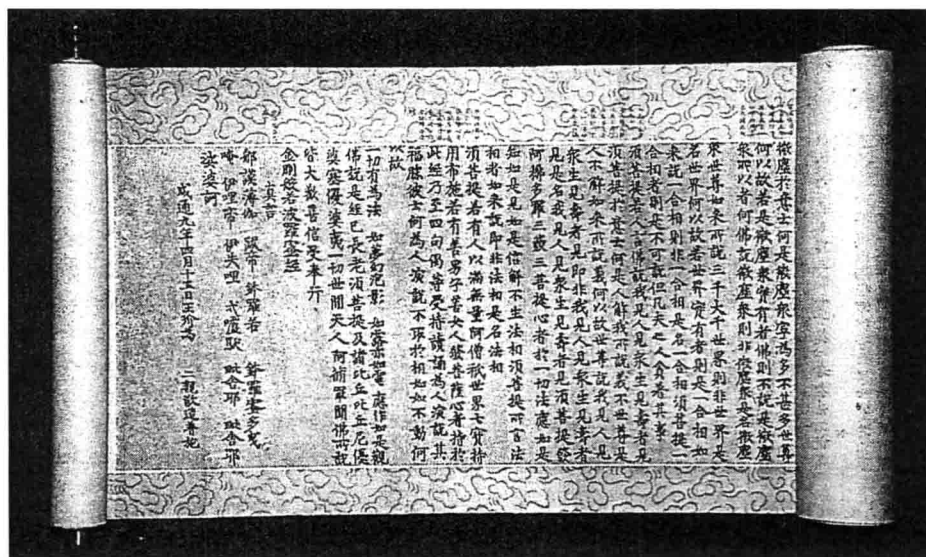 微塵於意云何是微塵眾寧為多不甚多世尊
何以故若是微塵眾實有者佛則不說是微塵
眾所以者何佛說微塵眾則非微塵眾是名微塵
眾世尊如來所說三千大千世界則非世界是
名世界何以故若世界實有者則是一合相如
來說一合相則非一合相是名一合相須菩提一
合相者則是不可說但凡夫之人貪著其事
須菩提若人言佛說我見人見眾生見壽者見
須菩提於意云何是人解我所說義不世尊是
人不解如來所說義何以故世尊說我見人見
眾生見壽者見即非我見人見眾生見壽者
見是名我見人見眾生見壽者見須菩提發
阿耨多羅三藐三菩提心者於一切法應如是
知如是見如是信解不生法相須菩提所言法
相者如來說即非法相是名法相
須菩提若有人以滿無量阿僧祇世界七寶持
用布施若有善男子善女人發菩薩心者持於
此經乃至四句偈等受持讀誦為人演說其
福勝彼云何為人演說不取於相如如不動何
以故
一切有為法 如夢幻泡影 如露亦如電 應作如是觀
佛說是經已長老須菩提及諸比丘比丘尼優
婆塞優婆夷一切世間天人阿脩羅聞佛所說
皆大歡喜信受奉行
金剛般若波羅蜜經
真言
那謨薄伽 跋帝 鉢羅若 鉢羅蜜多曳
唵 伊哩帝 伊失哩 戍嚧馱 毗舍耶 毗舍耶
娑婆訶
咸通九年四月十五日王玠為 二親敬造普施